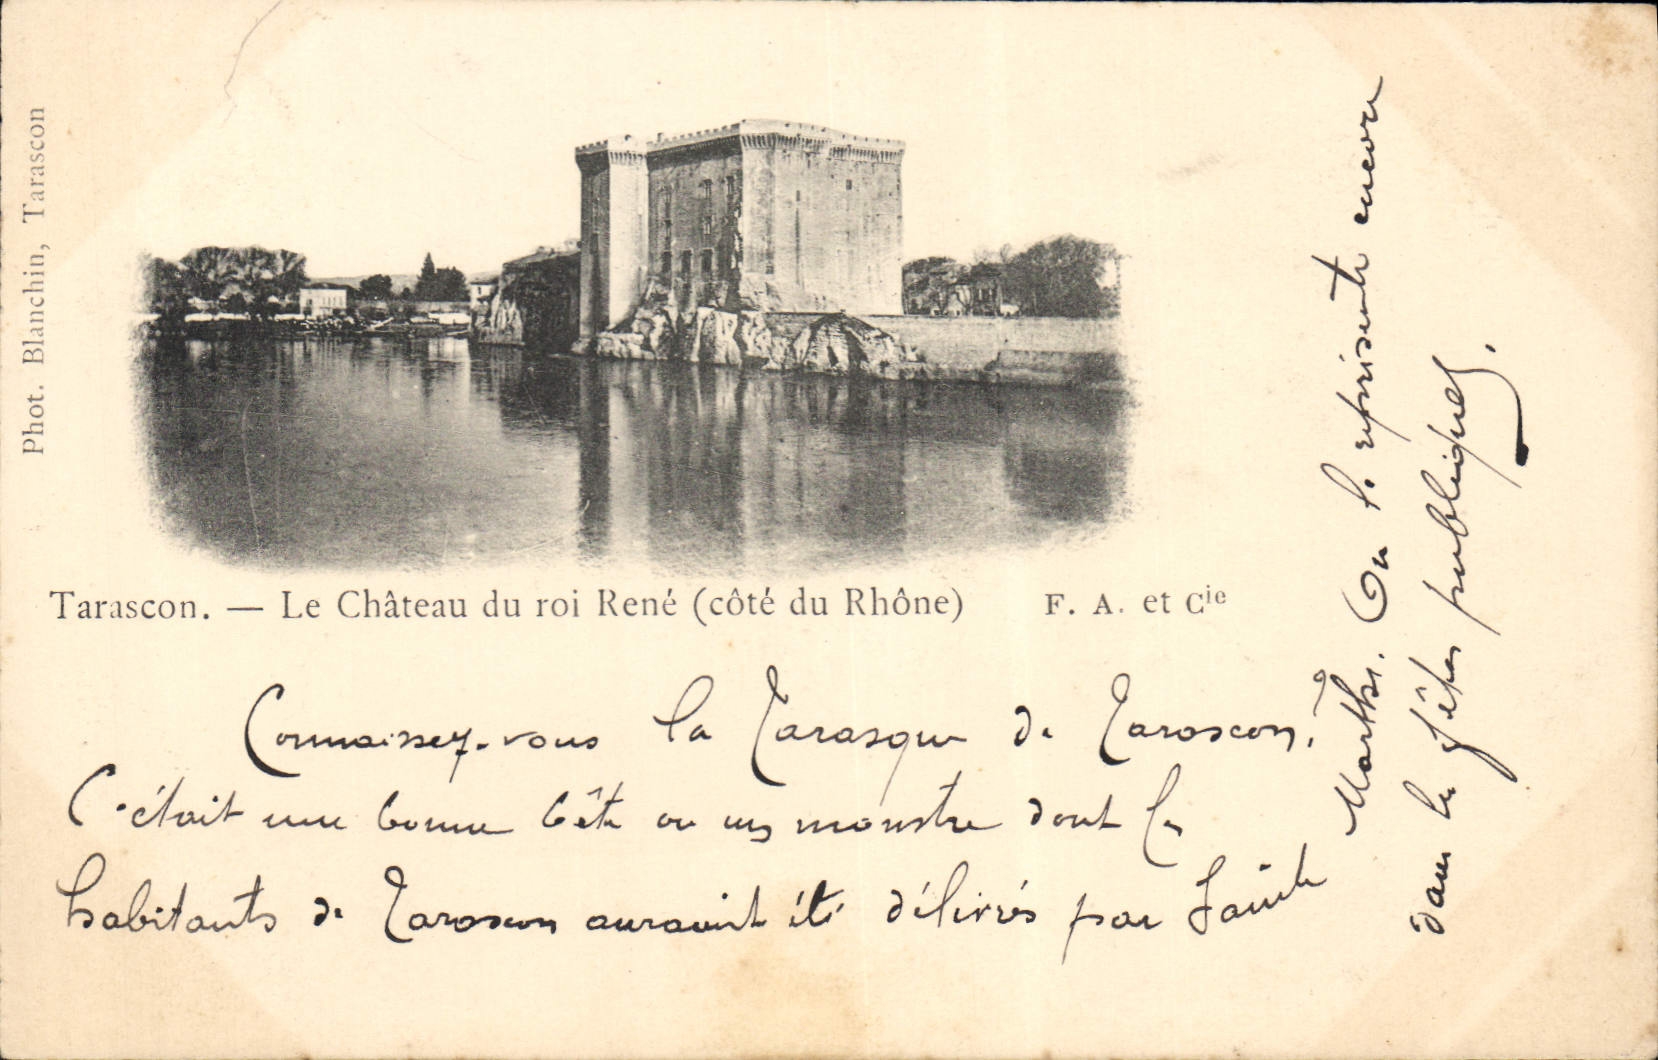 Phot. Blanchin, Tarascon
Tarascon. — Le Château du roi René (côté du Rhône) F. A. et Cie
Connaissez-vous la Tarasque de Tarascon ?
C'était une bonne bête ou un monstre dont les
habitants de Tarascon auraient été délivrés par Sainte
Marthe. On la représente encore
dans les fêtes publiques.